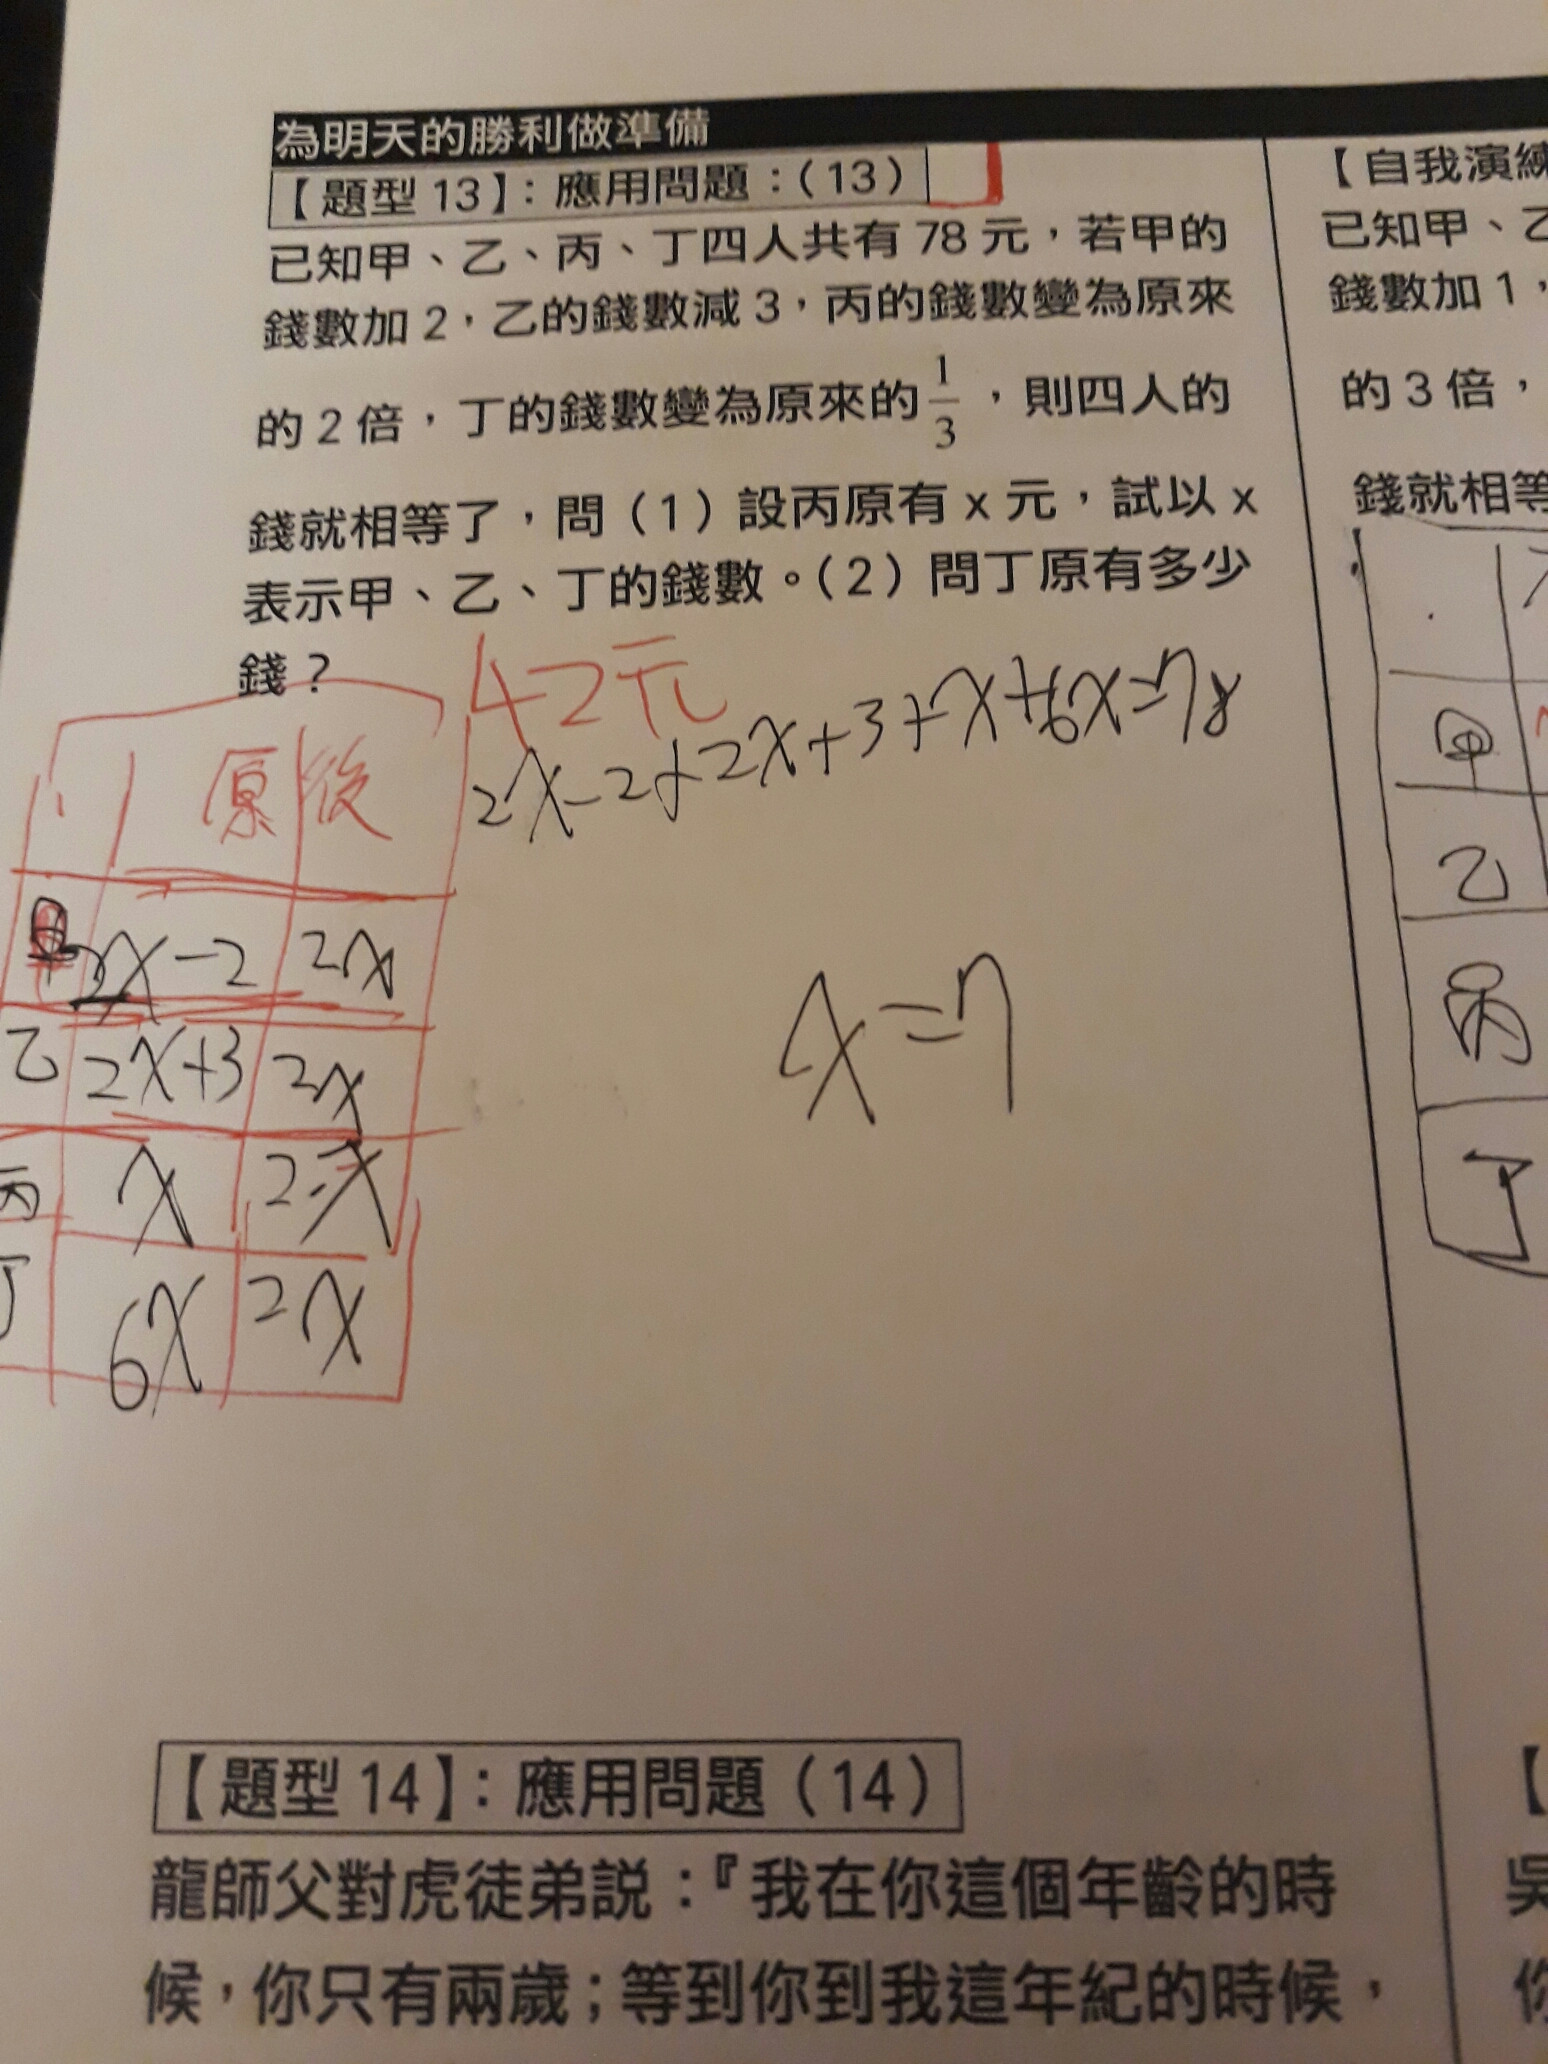 為明天的勝利做準備
【題型 13】：應用問題：(13)
已知甲、乙、丙、丁四人共有 78 元，若甲的
錢數加 2，乙的錢數減 3，丙的錢數變為原來
的 2 倍，丁的錢數變為原來的 1/3，則四人的
錢就相等了，問（1）設丙原有 x 元，試以 x
表示甲、乙、丁的錢數。（2）問丁原有多少
錢？
42元
2x-2+2x+3+x+6x=78
x=7
原 後
甲 2x-2 2x
乙 2x+3 2x
丙 x 2x
丁 6x 2x
【題型 14】：應用問題（14）
龍師父對虎徒弟說：『我在你這個年齡的時
候，你只有兩歲；等到你到我這年紀的時候，
【自我演練
已知甲、乙
錢數加 1，
的 3 倍，
錢就相等
甲
乙
丙
丁
【
吳
你